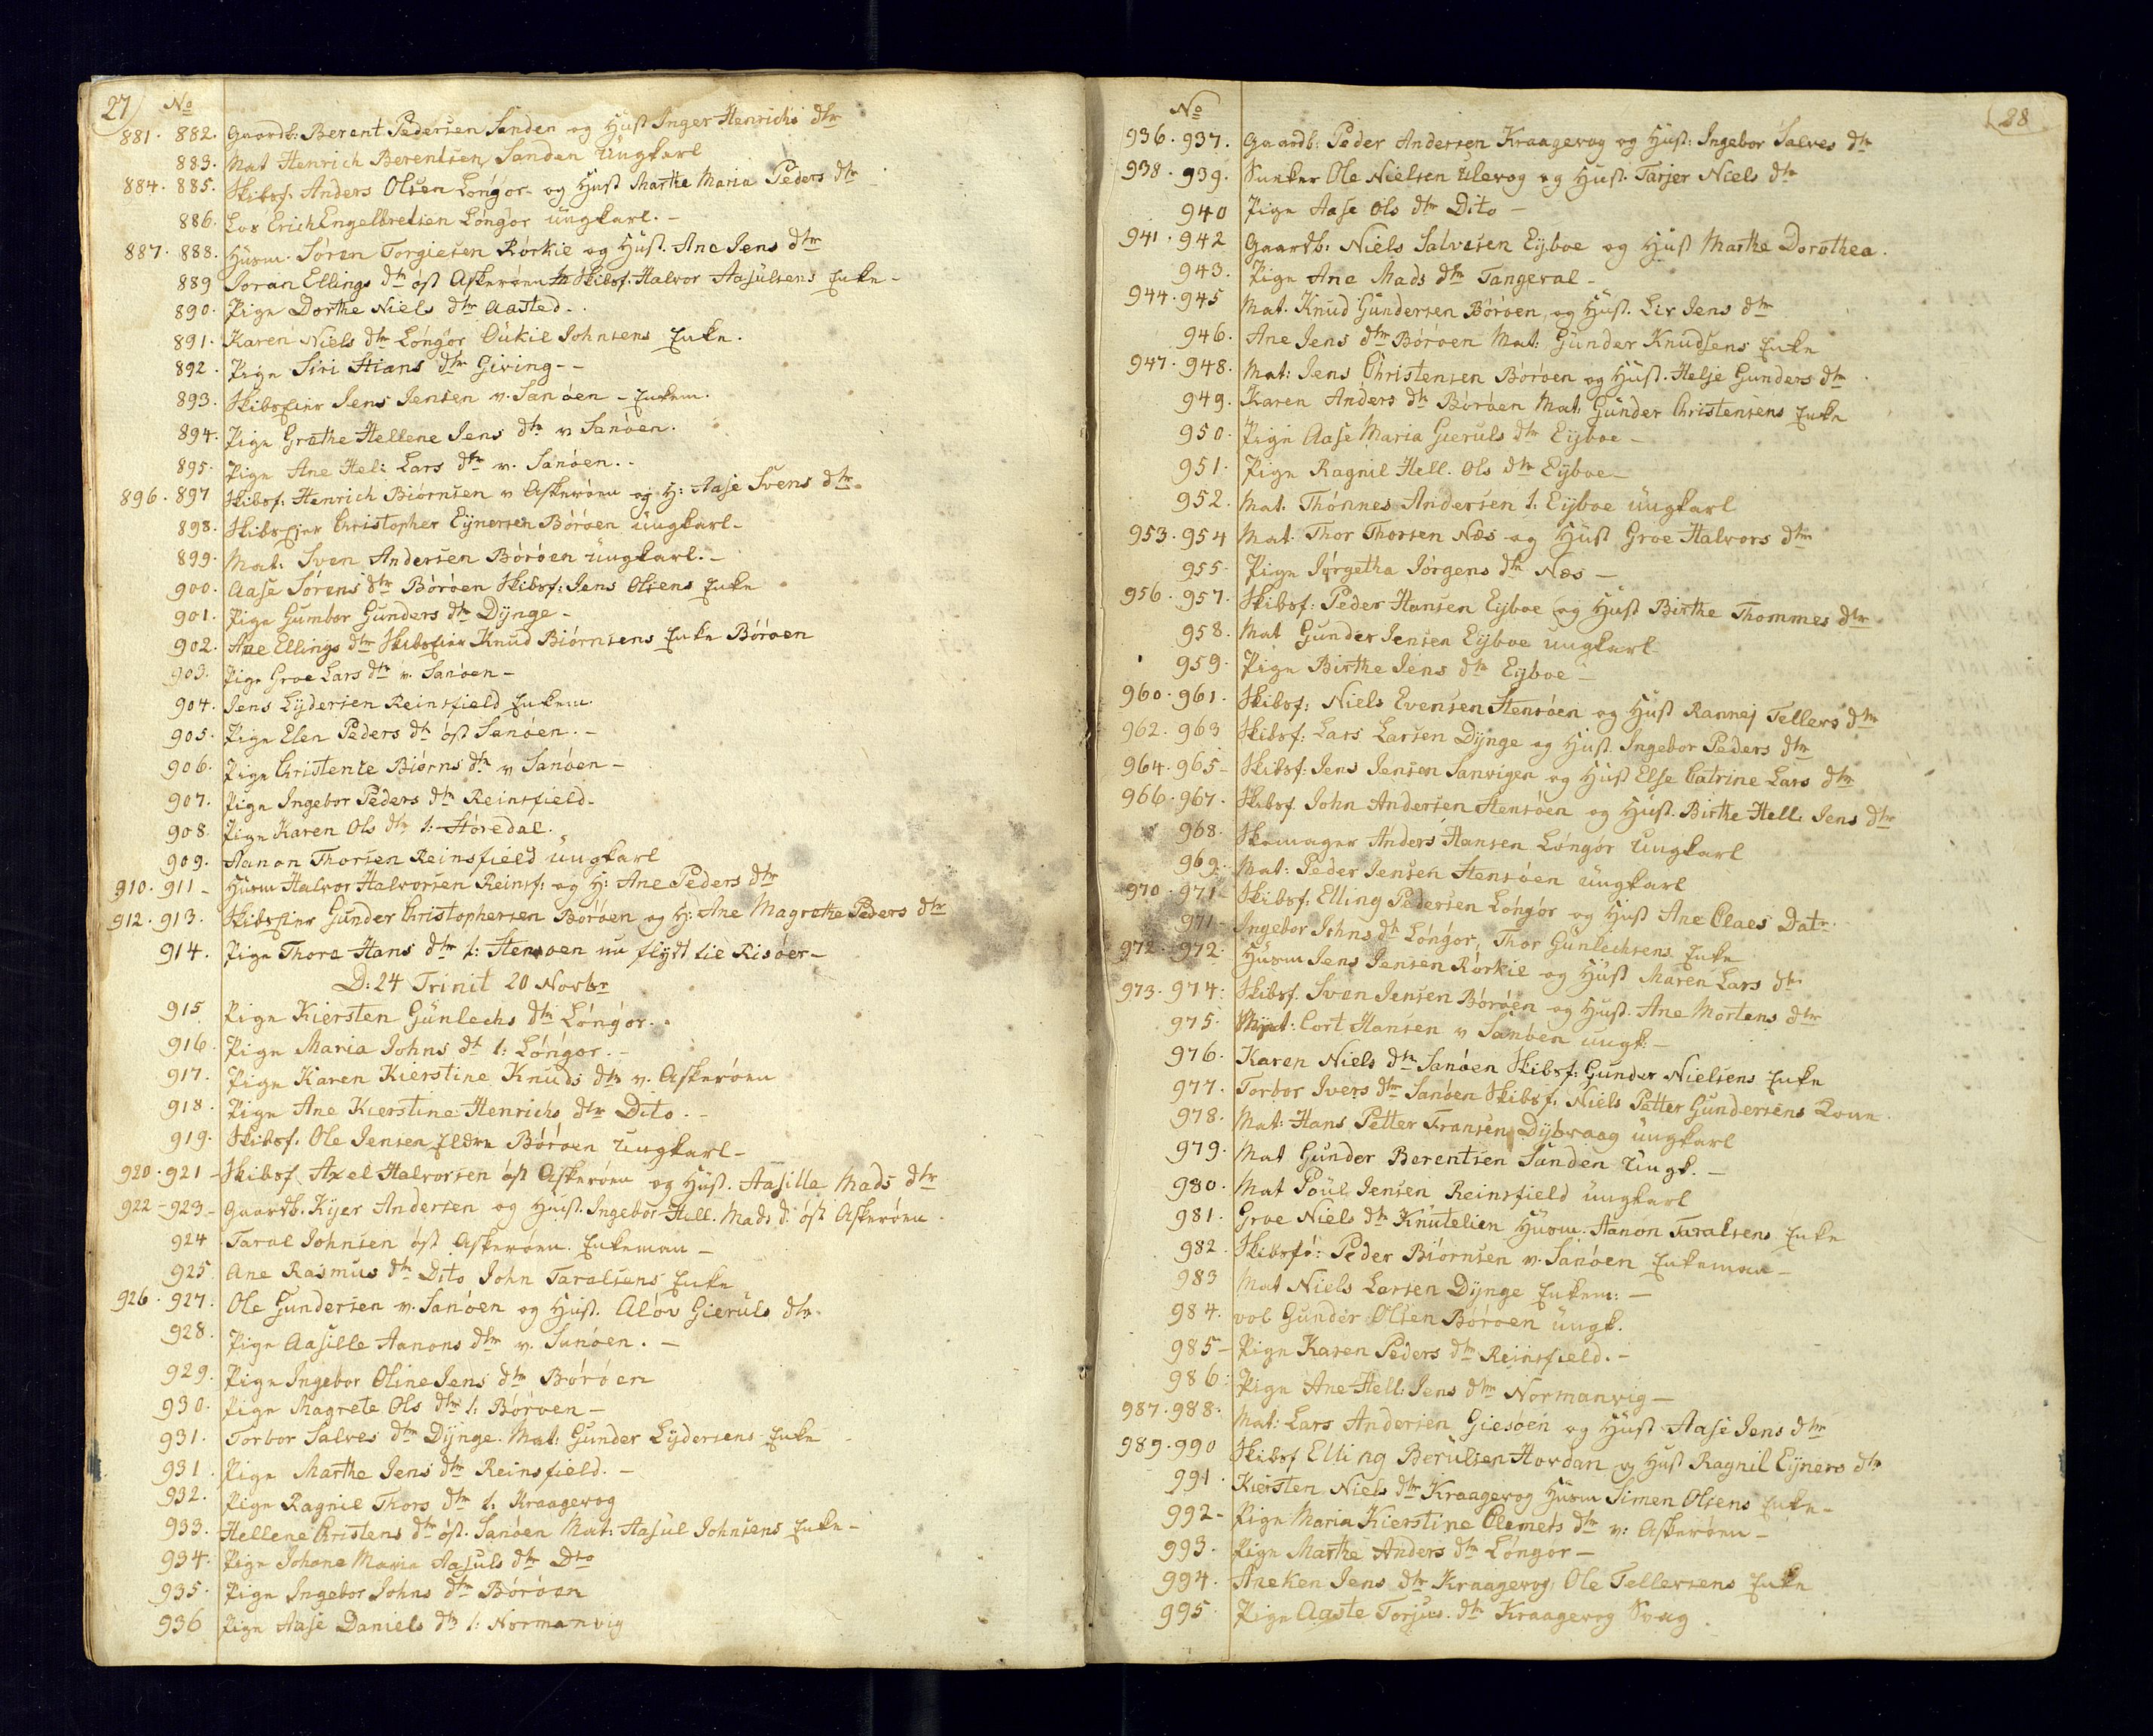 27) No
881. 882. Gaardb: Berent Pedersen Sanden og Hust Inger Henrichs dtr
883. Mat Henrich Berentsen Sanden Ungkarl
884. 885. Skibsf. Anders Olsen Lóngór og Hust Marthe Maria Peders dtr
886. Los Erich Engelbretsen Lóngór ungkarl. -
887. 888. Husm. Sóren Torgiesen Rórkie og Hust. Ane Iens dtr
889 Ioran Ellings dtr óst Askeróen Skibsf. Halvor Aasulsens Enke -
890. Pige Dorthe Niels dtr Aasted -
891. Karen Niels dtr Lóngór Oukie Iohnsens Enke.
892. Pige Siri Stians dtr Giving - -
893. Skibseier Iens Iensen v. Sanóen - Enkem.
894. Pige Grethe Hellene Iens dtr v Sanóen.
895. Pige Ane Hel: Lars dtr v. Sanóen. -
896. 897 Skibsf: Henrich Biórnsen v Askeróen og H: Aase Svens dtr
898. Skibseier Christopher Eijnersen Bóróen ungkarl -
899. Mat: Sven Andersen Bóróen ungkarl. -
900. Aase Sórens dtr Bóróen Skibsf: Iens Olsens Enke
901. Pige Gumbor Gunders dtr Dijnge -
902. Ane Ellings dtr Skibseier Knud Biórnsens Enke Bóróen
903. Pige Groe Lars dtr v. Sanóen -
904. Iens Lijdersen Reinsfield Enkem
905. Pige Elen Peders dtr óst Sanóen. -
906. Pige Christense Biórns dtr v Sanóen -
907. Pige Ingebor Peders dtr Reinsfield -
908. Pige Karen Ols dtr 1: Stóredal.
909. Aanon Thorsen Reinsfield ungkarl
910. 911 - Husm Halvor Halvorsen Reinsf: og H: Ane Peders dtr
912. 913. Skibseier Gunder Christophersen Bóróen og H: Ane Magrethe Peders dtr
914. Pige Thore Hans dtr 1: Stensoen nu flijtt til Risóer -
D: 24 Trinit 20 Novbr
915 Pige Kiersten Gunlechs dtr Lóngór.
916. Pige Maria Iohns dt 1: Lóngór. -
917. Pige Karen Kierstine Knuds dtr v. Askeróen
918. Pige Ane Kierstine Henrichs dtr Dito. -
919. Skibsf. Ole Iensen Eldre Bóróen Ungkarl -
920. 921 - Skibsf. Axel Halvorsen óst Askeróen og Hust. Aasille Mads dtr
922 - 923 - Gaardb. Kijer Andersen og Hust. Ingebor Hell. Mads d. óst Askeróen
924 Taral Iohnsen óst Askeróen. Enkeman -
925. Ane Rasmus dtr Dito Iohn Taralsens Enke
926. 927. Ole Gundersen v. Sanóen og Hust. Alóv Gieruls dtr.
928. Pige Aasille Aanons dtr v. Sanóen. -
929. Pige Ingebor Oline Iens dtr Bóróen
930. Pige Magrete Ols dtr 1: Bóróen -
931. Torbor Salves dtr Dijnge. Mat: Gunder Lijdersens Enke
931. Pige Marthe Iens dtr Reinsfield. -
932. Pige Ragnil Thors dtr 1: Kraagevog
933. Hellene Christens dtr óst. Sanóen Mat: Aasul Iohnsens Enke -
934. Pige Iohane Maria Aasuls dtr Dto
935. Pige Ingebor Iohns dtr Bóróen
936 Pige Aase Daniels dtr 1: Normanvig
No (28
936. 937. Gaardb: Peder Andersen Kraagevog og Hust: Ingebor Salves dtr
938. 939. Sneker Ole Nielsen Ulevog og Hust. Tarjer Niels dtr
940 Pige Aase Ols dtr Dito -
941. 942 Gaardb: Niels Salvesen Eijboe og Hust Marthe Dorothea.
943. Pige Ane Mads dtr Tangeral -
944. 945 Mat. Knud Gundersen Bóróen og Hust. Liv Iens dtr
946. Ane Iens dtr Bóróen Mat: Gunder Knudsens Enke
947. 948. Mat: Iens Christensen Bóróen og Hust. Helje Gunders dtr
949. Karen Anders dtr Bóróen Mat: Gunder Christensens Enke
950. Pige Aase Maria Gieruls dtr Eijboe -
951. Pige Ragnil Hell. Ols dtr Eijboe -
952. Mat. Thónnes Andersen 1: Eijboe ungkarl
953. 954 Mat. Thor Thorsen Næs og Hust Groe Halvors dtr
955. Pige Iórgetha Iórgens dtr Næs -
956. 957. Skibsf: Peder Hansen Eijboe og Hust Birthe Thommes dtr
958. Mat Gunder Iensen Eijboe ungkarl
959. Pige Birthe Iens dtr Eijboe -
960. 961. Skibsf: Niels Evensen Stensóen og Hust Rannej Tellers dtr
962. 963 Skibsf: Lars Larsen Dijnge og Hust. Ingebor Peders dtr
964. 965 - Skibsf: Iens Iensen Sanvigen og Hust Else Catrine Lars dtr
966. 967. Skibsf. Iohn Andersen Stensóen og Hust. Birthe Hell: Iens dtr
968. Skomager Anders Hansen Lóngór Ungkarl
969. Mat: Peder Iensen Stensóen ungkarl
970. 971 - Skibsf: Elling Pedersen Lóngór og Hust Ane Claes Datr.
971 - Ingebor Iohns dt Lóngór, Thor Gunlechsens Enke
972. 972. Husm Iens Iensen Rórkil og Hust Maren Lars dtr
973. 974. Skibsf. Sven Iensen Bóróen og Hust. Ane Mortens dtr
975. Mat: Cort Hansen v Sanóen ungk: -
976. Karen Niels dtr Sanóen Skibsf: Gunder Nielsens Enke
977. Torbor Ivers dtr Sanóen Skibsf: Niels Petter Gundersens Kone
978. Mat: Hans Petter Fransen Dijbvaag ungkarl
979. Mat Gunder Berentsen Sanden Ungk. -
980. Mat Poul Iensen Reinsfield ungkarl
981. Groe Niels dtr Knutelien Husm: Aanon Taralsens Enke
982. Skibsfó: Peder Biórnsen v. Sanóen Enkeman -
983 Mat Niels Larsen Dijnge Enkem: -
984. vol Gunder Olsen Bóróen ungk.
985 - Pige Karen Peders dtr Reinsfield. -
986: Pige Ane Hell: Iens dtr Normanvig -
987. 988. Mat: Lars Andersen Giesoen og Hust Aase Iens dtr
989. 990 Skibsf Elling Berulsen Hovdan og Hust Ragnil Eijners dtr
991. Kiersten Niels dtr Kraagevog Husm Simen Olsens Enke -
992 - Pige Maria Kierstine Clemets dtr v: Askeróen -
993. Pige Marthe Anders dtr Lóngór -
994. Aneken Iens dtr Kraagevog, Ole Tellersens Enke
995. Pige Aaste Torjus. dtr Kraagevog Svag